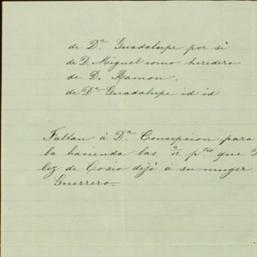 de Dª Guadalupe por si
de D. Miguel como heredero
de D. Ramon.
de Dª Guadalupe id id
Faltan á Dª Concepcion para
la hacienda las pᵗᵉˢ que
lez de Cosio dejó á su muger
Guerrero.